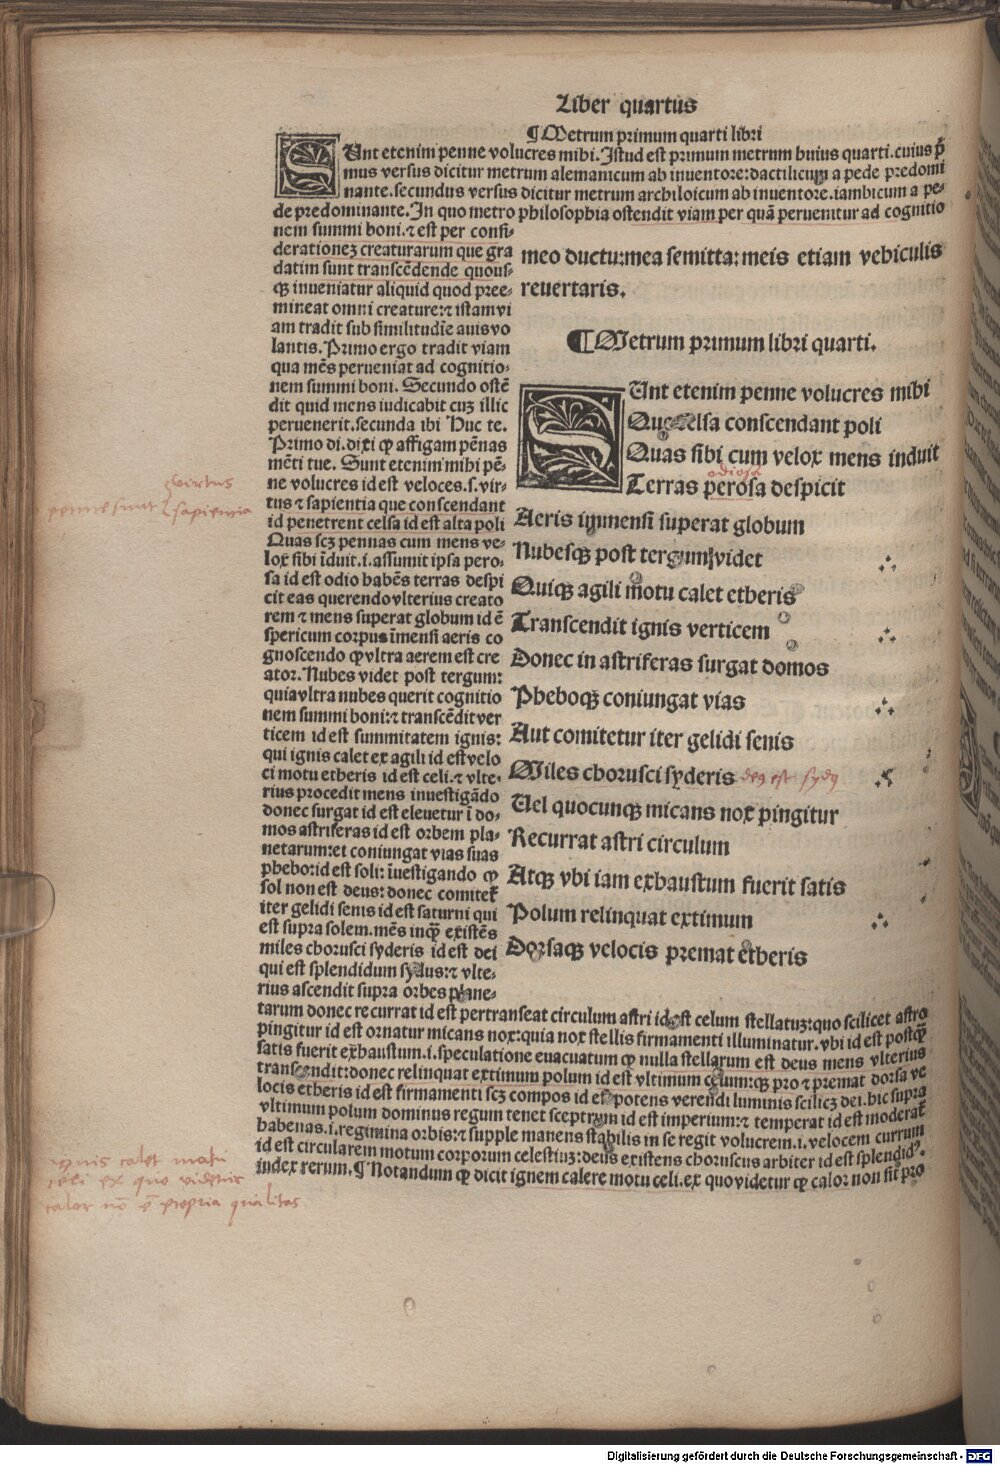 Liber quartus
¶ Metrum primum quarti libri
SUnt etenim penne volucres mihi. Istud est primum metrum huius quarti. cuius p̄
mus versus dicitur metrum alemanicum ab inventore: dactilicum a pede predomi
nante. secundus versus dicitur metrum archiloicum ab inventore. iambicum a pe⸗
de predominante. In quo metro philosophia ostendit viam per quā pervenitur ad cognitio
nem summi boni. ⁊ est per consi⸗
derationeꝫ creaturarum que gra
datim sunt transcēdende quous⸗
qꝫ inveniatur aliquid quod pree⸗
mineat omni creature: ⁊ istam vi
am tradit sub similitudīe avis vo
lantis. Primo ergo tradit viam
qua mēs perveniat ad cognitio⸗
nem summi boni. Secundo ostē
dit quid mens iudicabit cuꝫ illic
pervenerit. secunda ibi Huc te.
Primo di. dixi ꝙ affigam pēnas
mēti tue. Sunt etenim mihi pē⸗
ne volucres id est veloces. s. vir⸗
tus ⁊ sapientia que conscendant
id penetrent celsa id est alta poli
Quas scꝫ pennas cum mens ve⸗
lox sibi īduit. i. assumit ipsa pero⸗
sa id est odio habēs terras despi
cit eas querendo vlterius creato
rem ⁊ mens superat globum id ē
spericum corpus īmensi aeris co
gnoscendo ꝙ vltra aerem est cre
ator. Nubes videt post tergum:
quia vltra nubes querit cognitio
nem summi boni: ⁊ transcēdit ver
ticem id est summitatem ignis:
qui ignis calet ex agili id est velo
ci motu etheris id est celi. ⁊ vlte⸗
rius procedit mens investigādo
donec surgat id est elevetur ī do⸗
mos astriferas id est orbem pla⸗
netarum: et coniungat vias suas
phebo: id est soli: īvestigando ꝙ
sol non est deus: donec comitet̄
iter gelidi senis id est saturni qui
est supra solem. mēs inqꝫ existēs
miles chorusci syderis id est dei
qui est splendidum sydus: ⁊ vlte⸗
rius ascendit supra orbes plane⸗
meo ductu: mea semitta: meis etiam vehiculis
revertaris.
¶ Metrum primum libri quarti.
SUnt etenim penne volucres mihi
Que celsa conscendant poli
Quas sibi cum velox mens induit
odiosa
Terras perosa despicit
Aeris immensi superat globum
Nubesqꝫ post tergum videt
Quiqꝫ agili motu calet etheris
Transcendit ignis verticem
Donec in astriferas surgat domos
Pheboqꝫ coniungat vias
Aut comitetur iter gelidi senis
Miles chorusci syderis
Uel quocunqꝫ micans nox pingitur
Recurrat astri circulum
Atqꝫ vbi iam exhaustum fuerit satis
Polum relinquat extimum
Dorsaqꝫ velocis premat etheris
tarum donec recurrat id est pertranseat circulum astri id est celum stellatuꝫ: quo scilicet astro
pingitur id est ornatur micans nox: quia nox stellis firmamenti illuminatur. vbi id est postqꝫ
satis fuerit exhaustum. i. speculatione evacuatum ꝙ nulla stellarum est deus mens vlterius
transcendit: donec relinquat extimum polum id est vltimum celum: qꝫ pro ⁊ premat dorsa ve
locis etheris id est firmamenti scꝫ compos id est potens verendi luminis scilicꝫ dei. hic supra
vltimum polum dominus regum tenet sceptrum id est imperium: ⁊ temperat id est moderat̄
habenas. i. regimina orbis: ⁊ supple manens stabilis in se regit volucrem. i. velocem currum
id est circularem motum corporum celestiuꝫ: deus existens choruscus arbiter id est splendidꝰ.
iudex rerum. ¶ Notandum ꝙ dicit ignem calere motu celi. ex quo videtur ꝙ calor non sit pro
virtus
penne sunt sapiencia
deꝰ est sydꝰ
ignis calet motu
celi ex quo videtur
calor nō ē propria qualitas
Digitalisierung gefördert durch die Deutsche Forschungsgemeinschaft - DFG